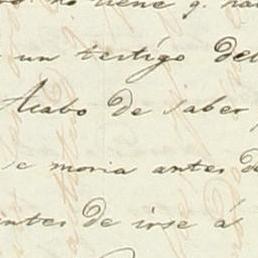 no tiene q.
un testigo del
Acabo de saber
se moria antes de
antes de irse á